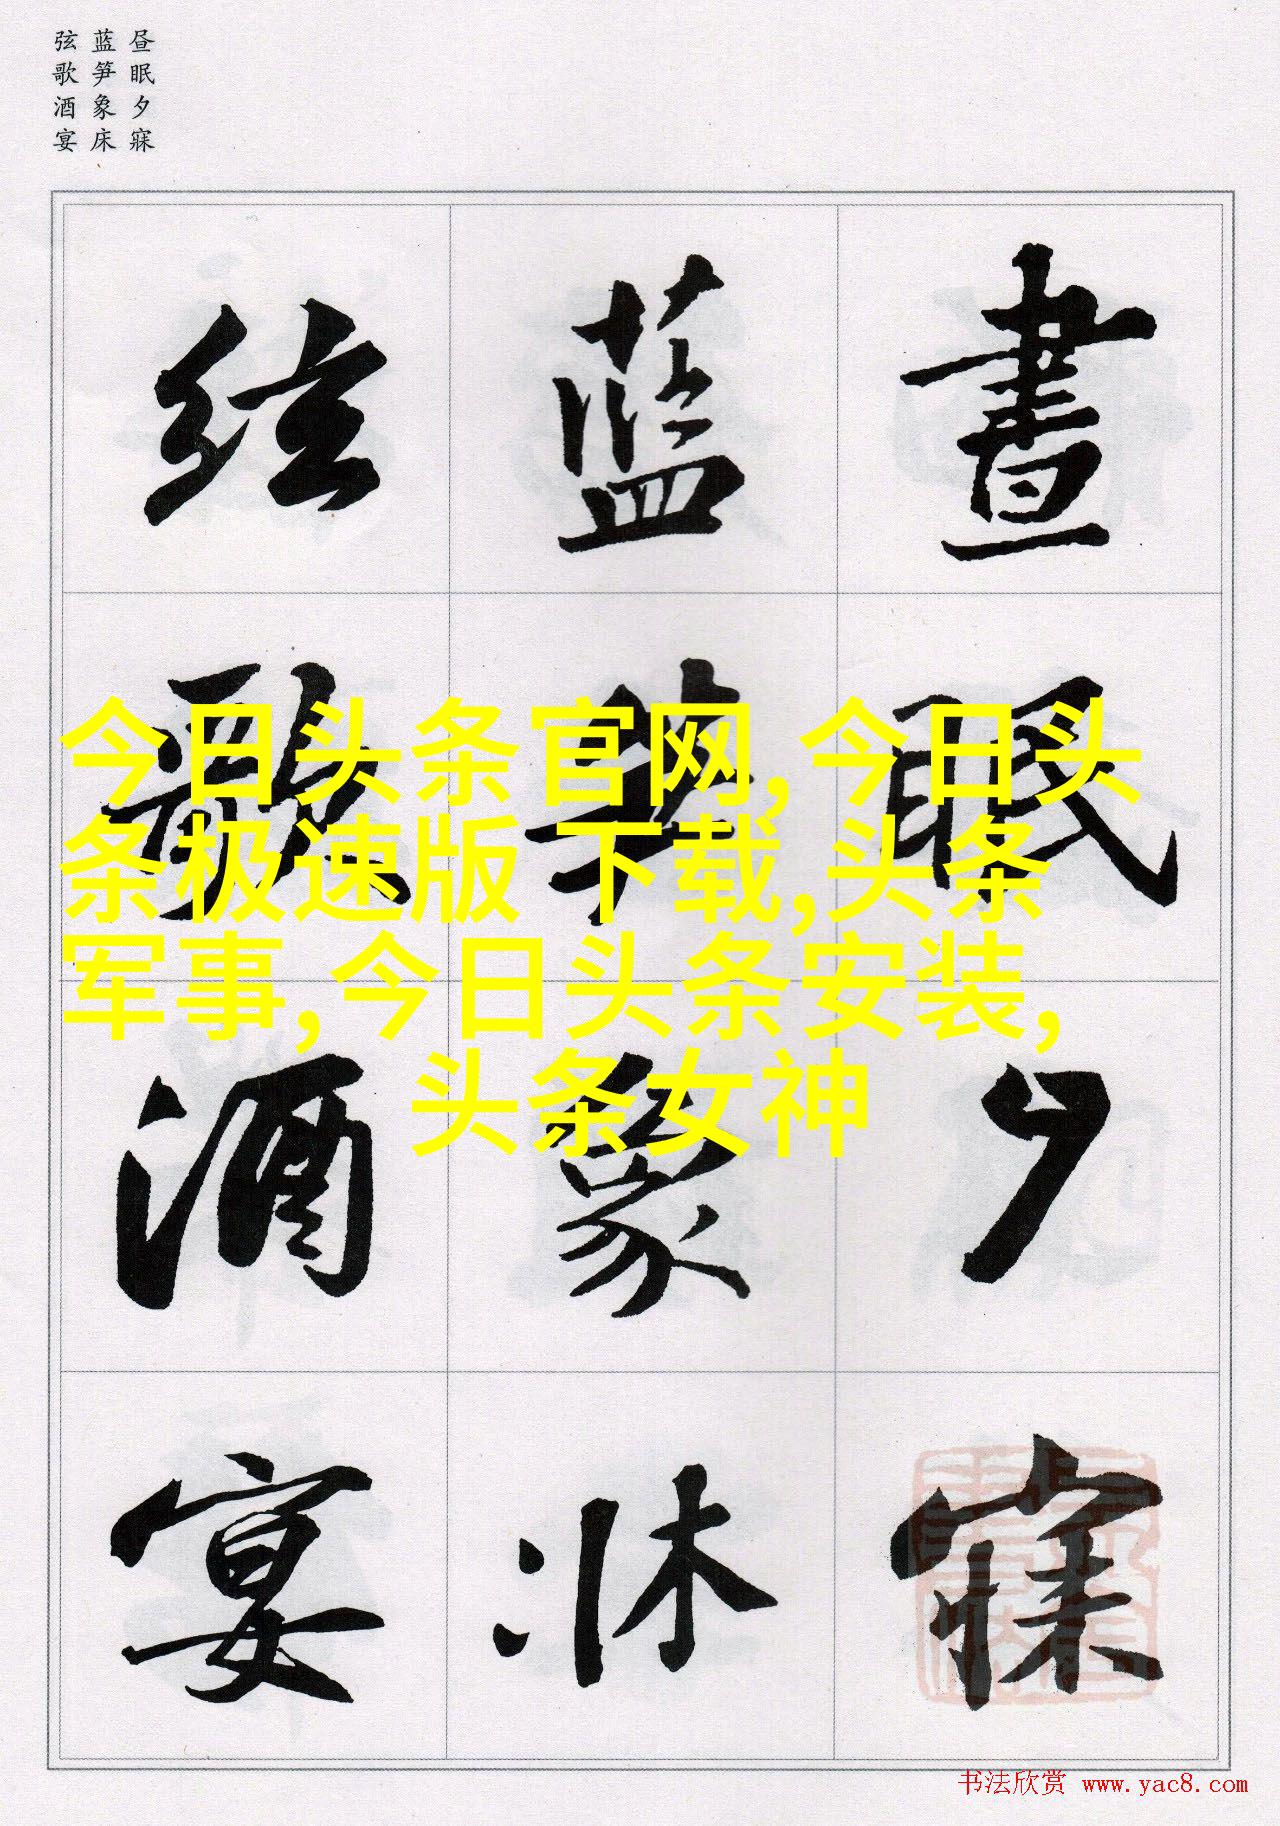 昼眠夕寐
蓝笋象床
弦歌酒宴
晝眠夕寐
蓝笋象牀
弦歌酒宴
今日头条官网,今日头
条极速版 下载,头条
军事,今日头条安装,
头条女神
书法欣赏 www.yac8.com